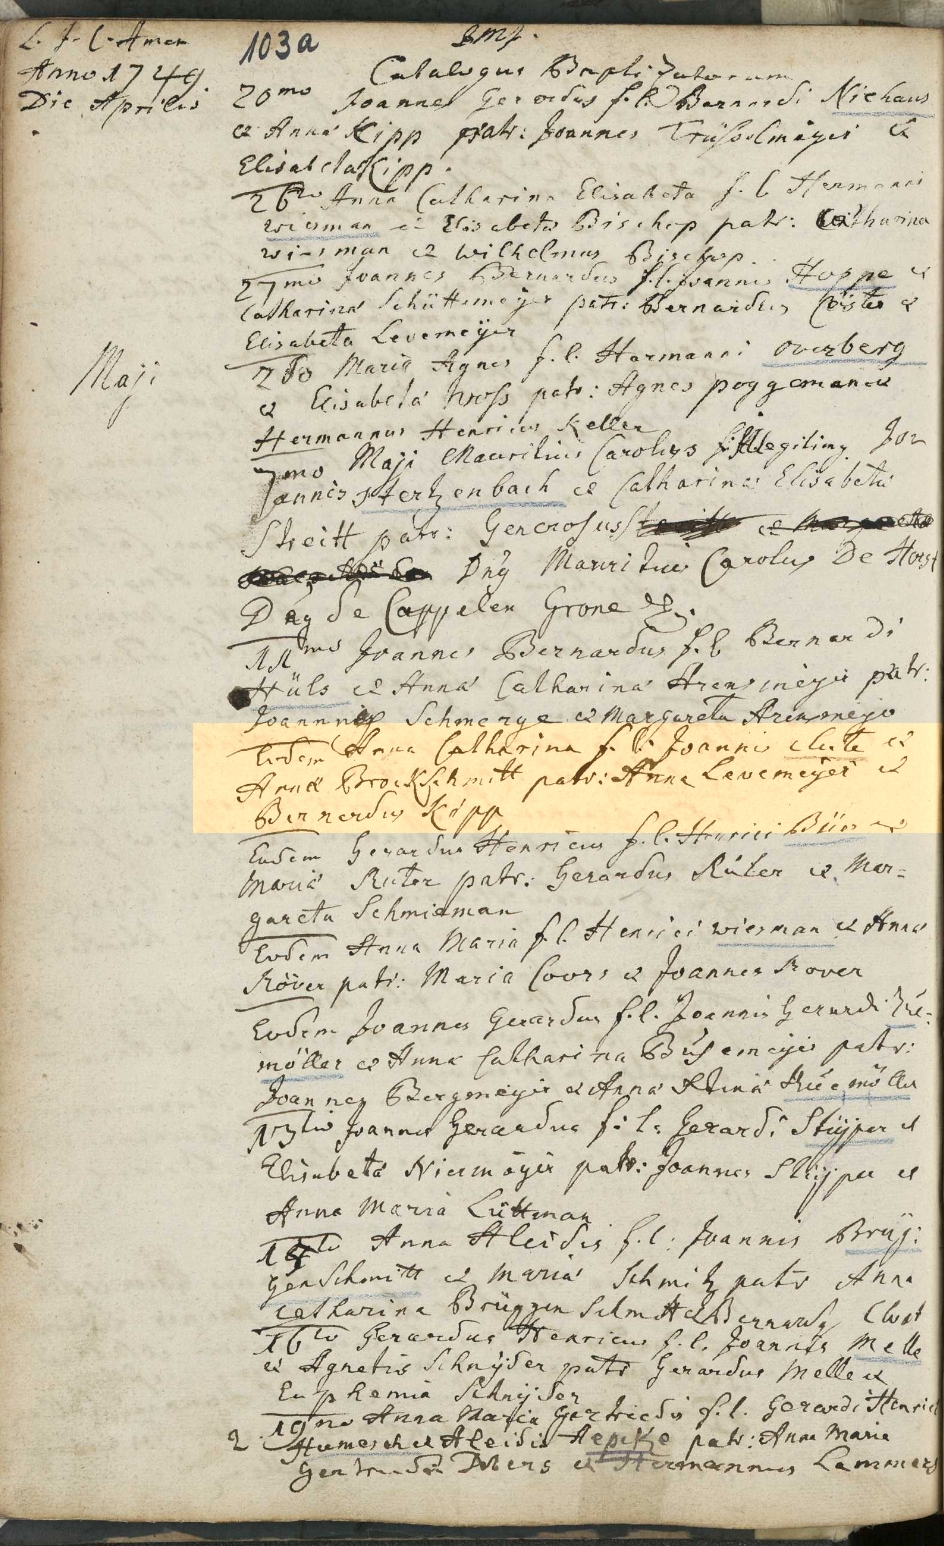 L. J. C. Amen
103a
Anno 1749
Die Aprilis
Catalogus Baptizatorum
20mo Joannes Gerardus f. l. Bernardi Niehaus
et Anna Kipp patr: Joannes Trüsselmeyer et
Elisabeta Kipp.
26to Anna Catharina Elisabeta f. l Hermanni
wiesman et Elisabeta Bischop patr: Catharina
wiesman et wilhelmus Bischop.
27mo Joannes Bernardus f. l. Joannis Hoppe et
Catharina Schüttemeyer patr: Bernardus Cöster et
Elisabeta Levemeijer
Maji
Maria Agnes f. l. Harmanni overberg
et Elisabeta patr: Agnes poggeman et
Hermannus Henricus Keller
7mo Maji Mauritius Carolus f. illegitimg Jo
annis Hertzenbach et Catharinae Elisabeta
Streitt patr: Generosus
Dng Mauritius Carolus De Horst
de Cappelen Grone
11mo Joannes Bernardus f. l Bernardi
Hüls et Anna Catharina Arensmeyer patr:
Joannes Schmerge et Margareta Arensmeyer
Eodem Anna Catharina f. l: Joannis clute et
Anna Brockschmitt patr: Anna Levemeijer et
Bernardus Kipp
Eodem Gerardus Henricus f. l. Henrici et
Maria Ruter patr: Gerardus Rüter et Mar=
gareta Schmidman
Eodem Anna Maria f l. Henrici wiesman et Anna
Röver patr: Maria Coors et Joannes Rover
Eodem Joannes Gerardus f. l. Joannis Gerardi
möller et Anna Catharina Büssemeyer patr:
Joannes Bergmeyer et Anna
13tio Joannes Gerardus f. l: Gerardi Stüjper et
Elisabeta Niemöyer patr: Joannes Stüjper et
Anna Maria Lüttman
Anna Aleidis f. l: Joannis Brüg:
genschmitt et Maria Schmitz patr Anna
Catharina Brüggenschmitt et Bernardg Clost
16to Gerardus Henricus f. l. Joannis Melle
et Agnetis Schnijder patr Gerardus Melle et
Euphemia Schnijder
19no Anna Maria Gertrudis f. l. Gerardi Henrici
2 Aleidis Aepcke patr: Anna Maria
Gertrudis et Hermannus Lammers